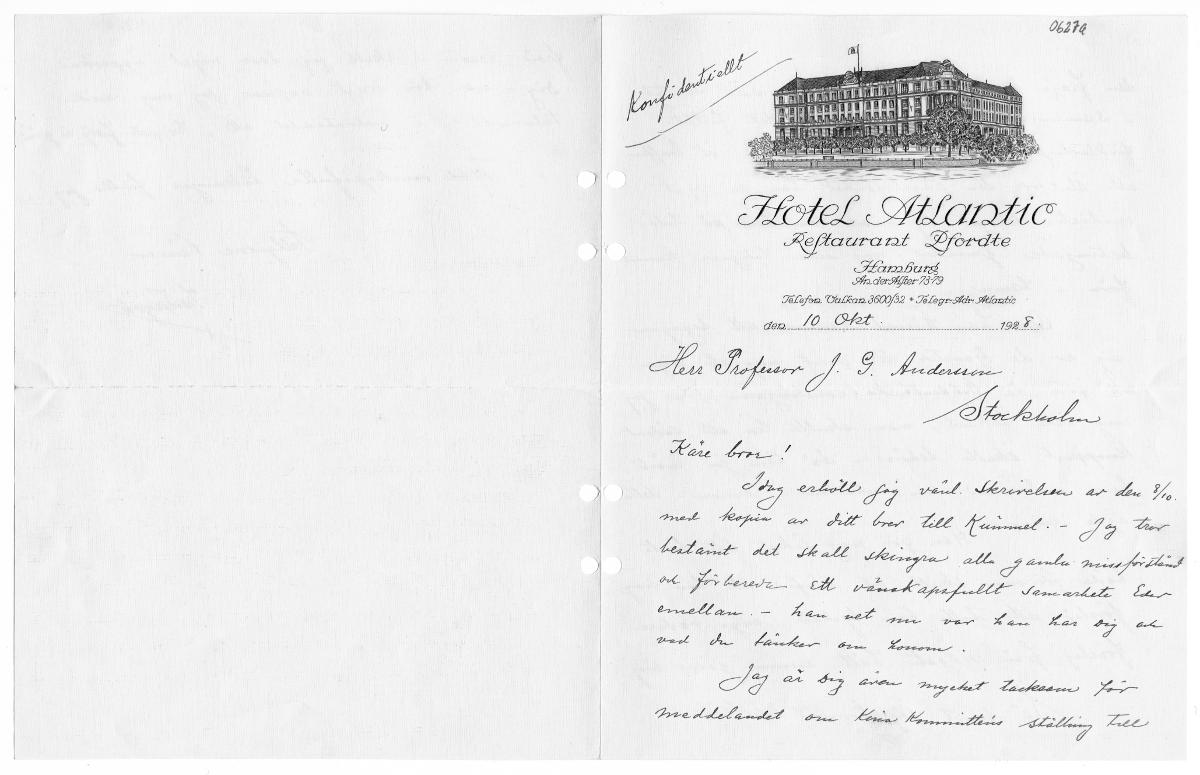 0627a
Konfidentiellt
Hotel Atlantic
Restaurant Pfordte
Hamburg
An der Alster 73-79
Telefon Vulkan 3600/32 * Telegr-Adr. Atlantic
den 10 Okt. 1928.
Herr Professor J. G. Andersson
Stockholm
Käre bror!
Idag erhöll jag vänl. skrivelsen av den 8/10.
med kopia av ditt brev till Kümmel. - Jag tror
bestämt det skall skingra alla gamla missförstånd
och förbereda ett vänskapsfullt samarbete Eder
emellan. - han vet nu var han har Dig och
vad du tänker om honom.
Jag är Dig även mycket tacksam för
meddelandet om Kina Kommitténs ställning till